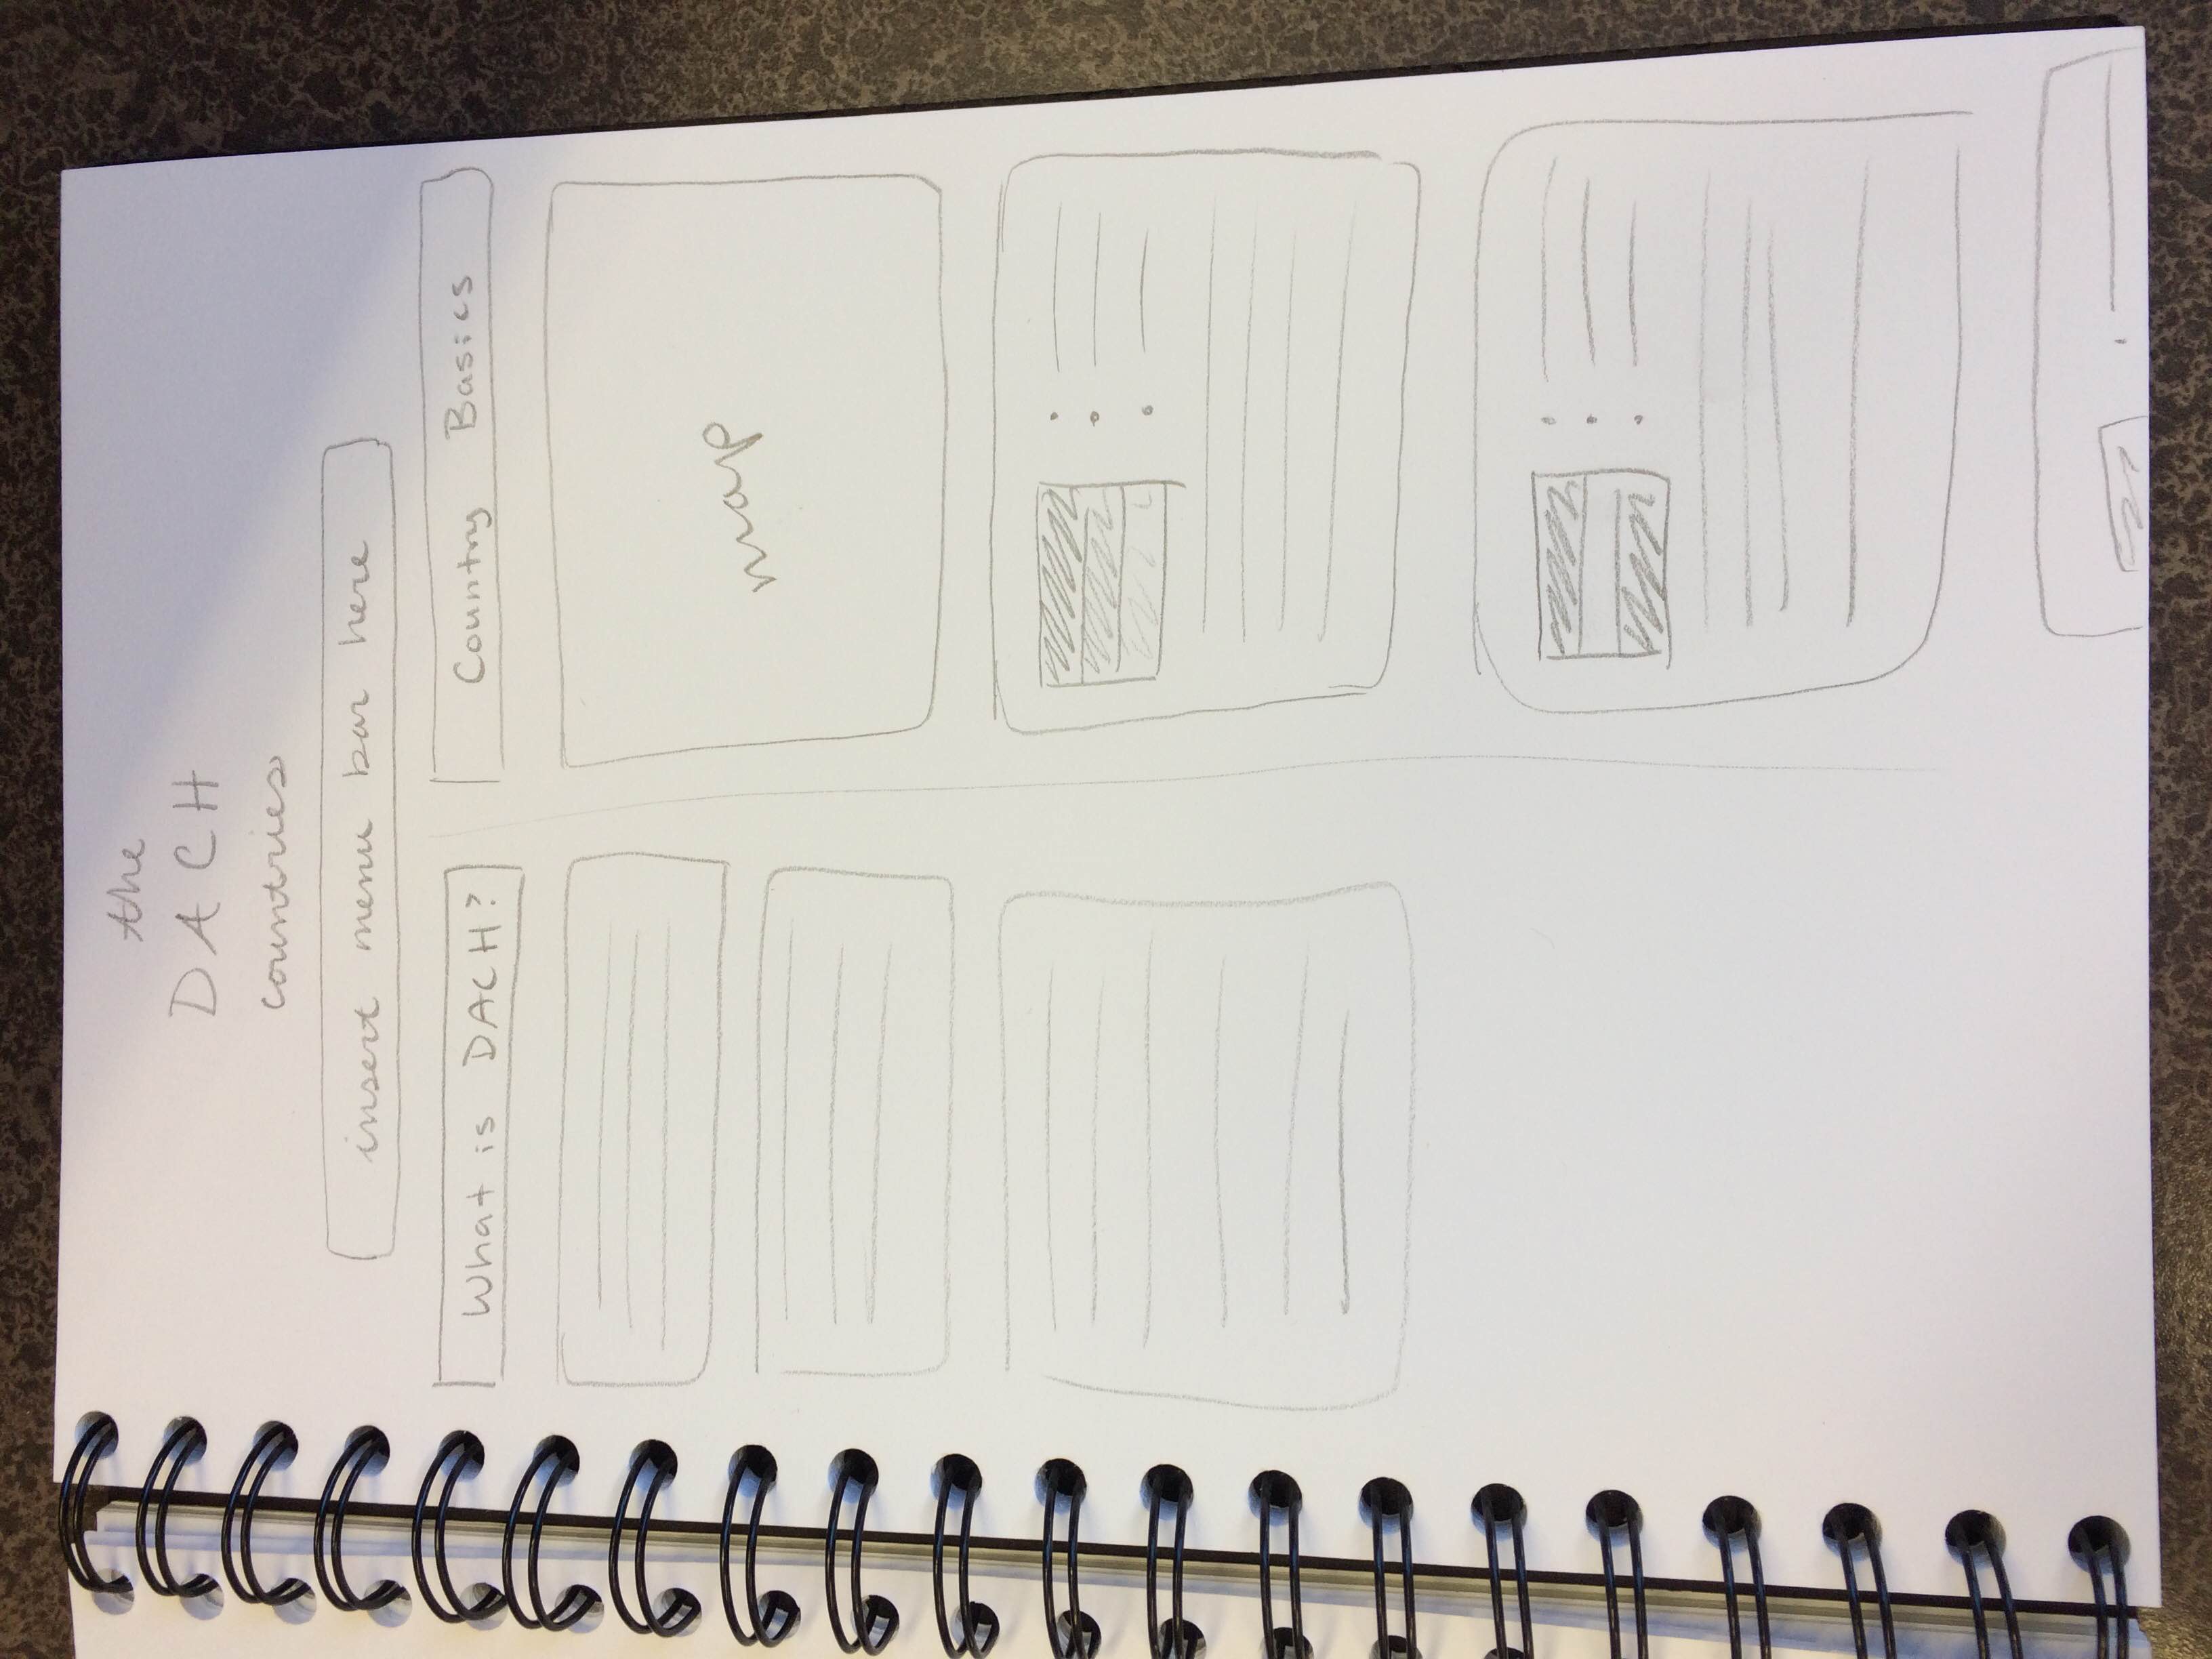 the
DACH
countries
insert menu bar here
What is DACH?
Country Basics
map